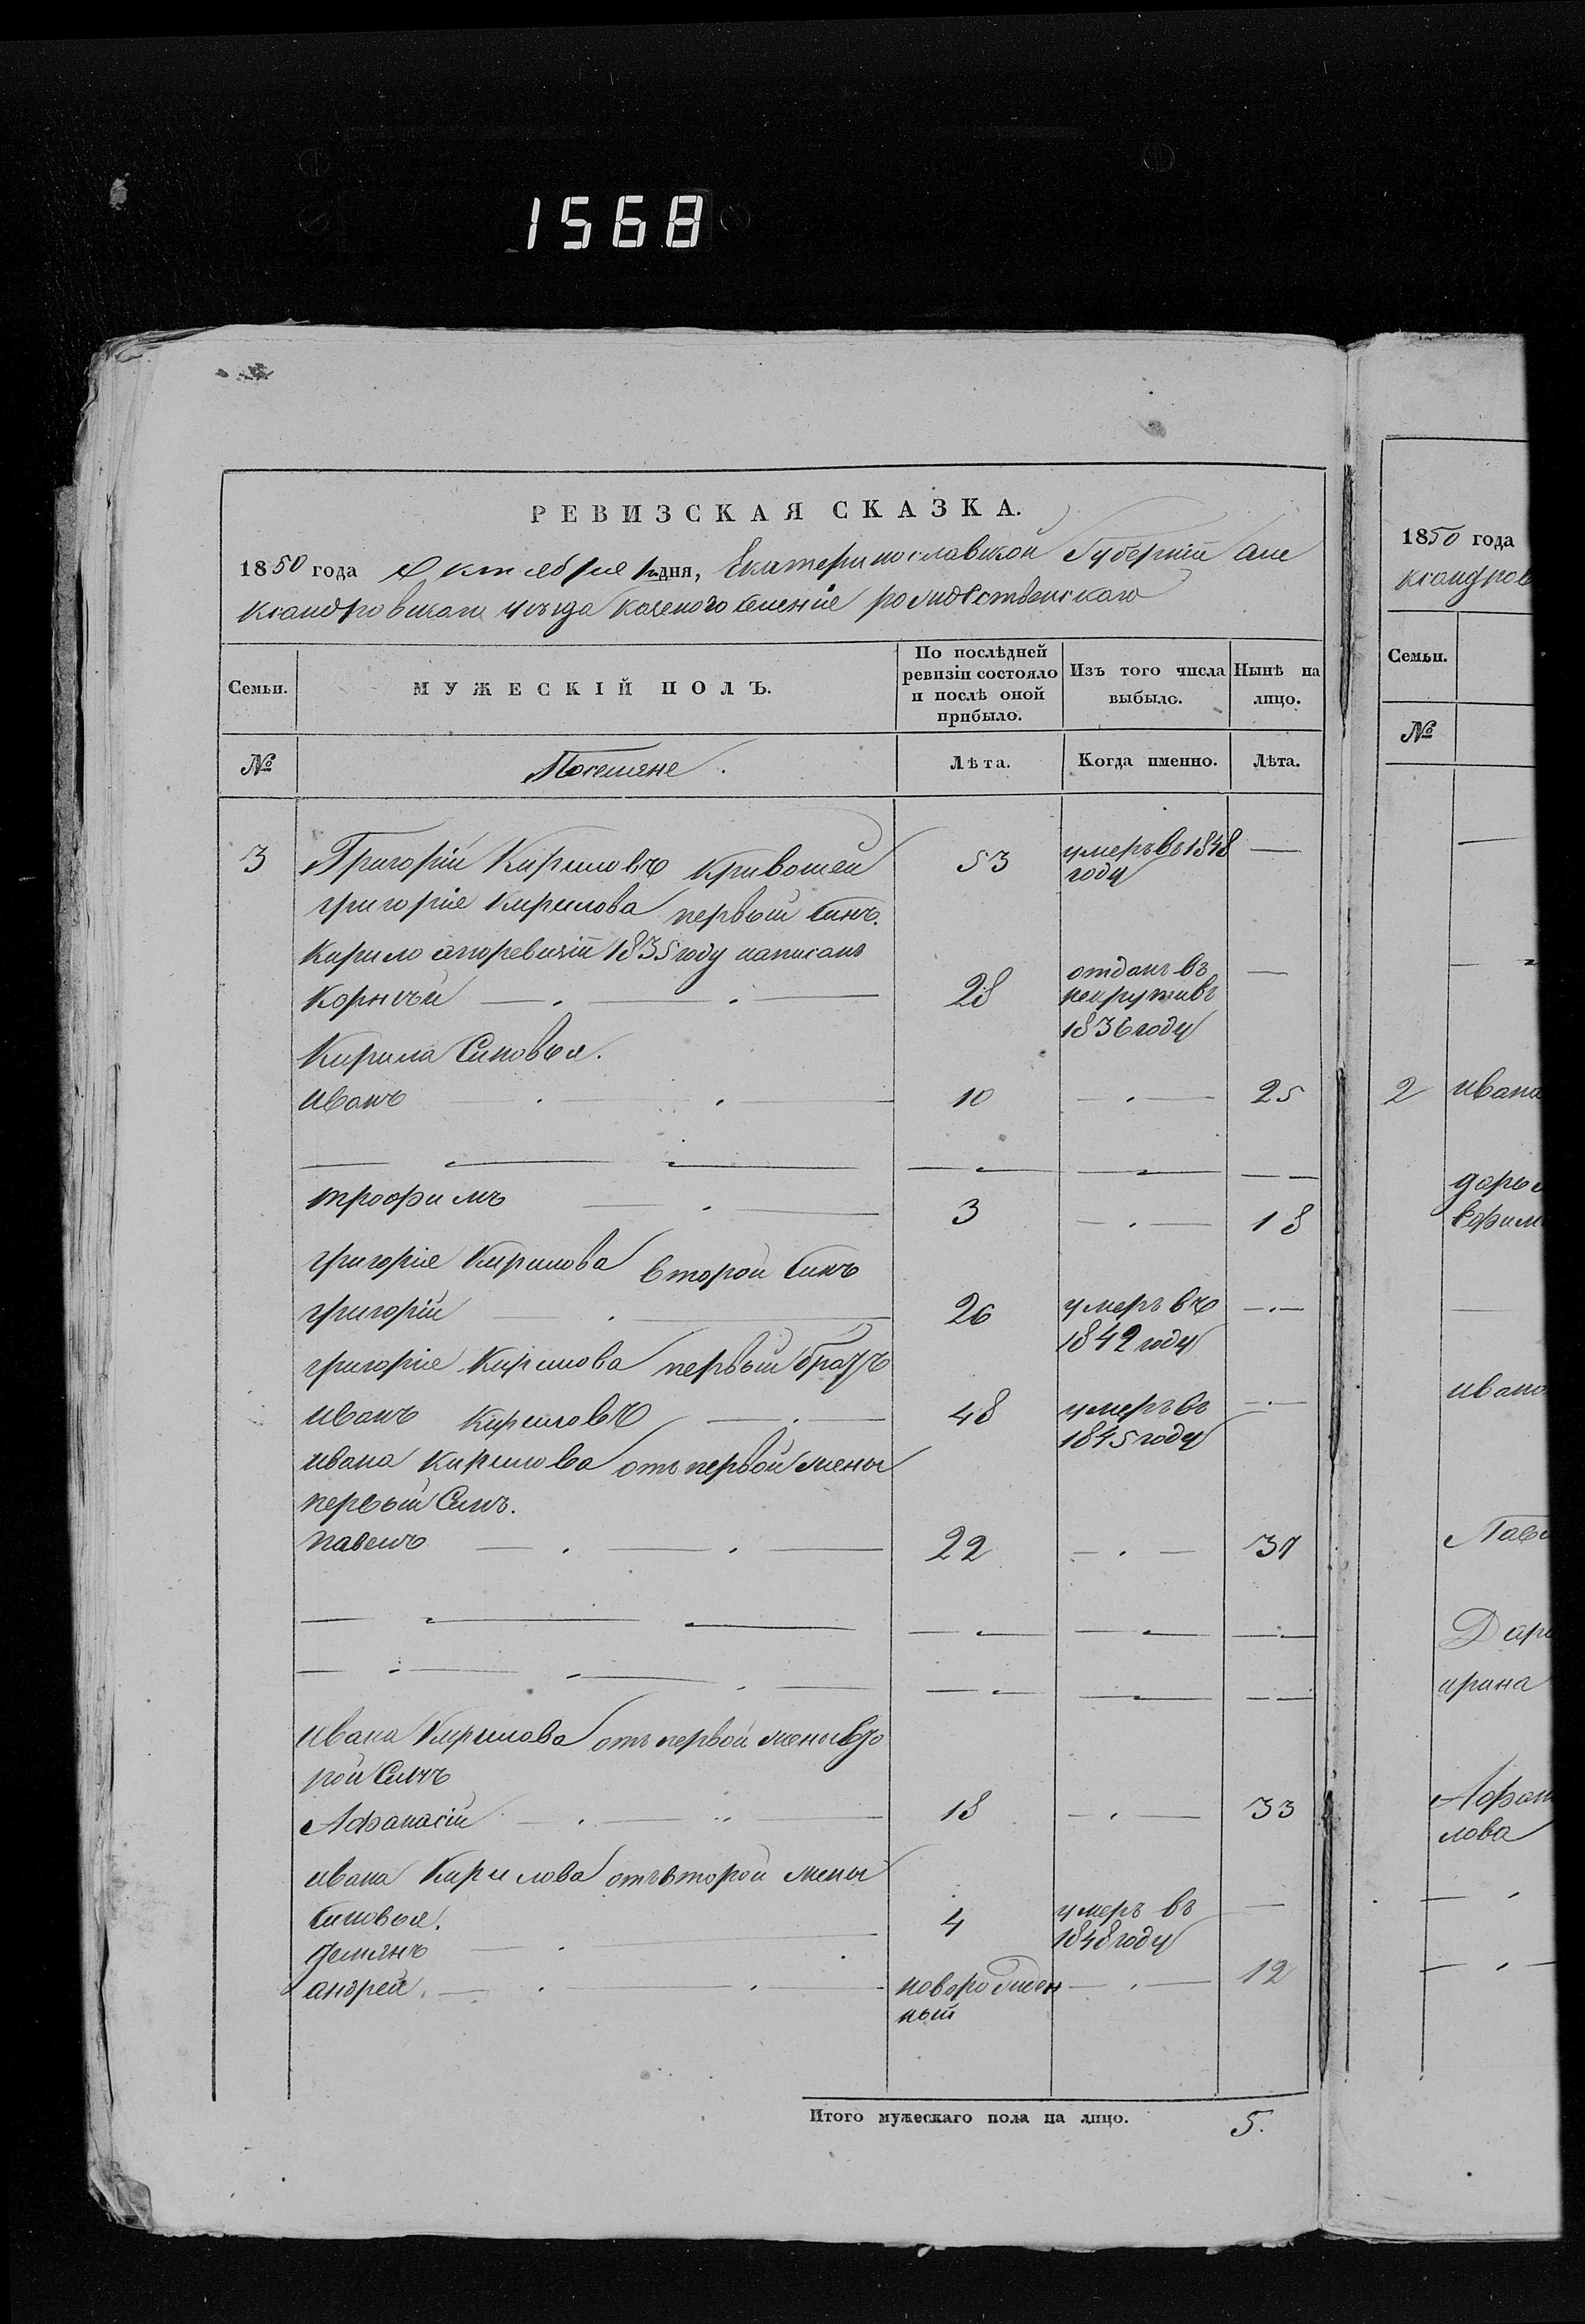 1568
РЕВИЗСКАЯ СКАЗКА.
1850 года Октября дня, Екатеринославской Губернии Але
ксандровскаго уезда казеного селения рождественскаго
Семьи.
МУЖЕСКІЙ ПОЛЪ.
По послѣдней ревизіи состояло и послѣ оной прибыло.
Изъ того числа выбыло.
Нынѣ на лицо.
№
Поселяне.
Лѣта.
Когда именно.
Лѣта.
3 Григорій Кириловъ Кривошей 53 умеръ въ 1848 —
году
григоріе Кирилова первый Синъ.
Кирило 1835 году написанъ
Корнѣй — . — . — 28 отданъ въ —
рекруты въ
1836 году
Кирила Синовья.
иванъ — . — . — 10 — . — 25
трофимъ — . — 3 — . — 18
григоріе Кирилова второй Синъ
григорій — . — 26 умеръ въ — . —
1849 году
григоріе Кирилова первый братъ
иванъ Кириловъ — . — 48 умеръ въ — . —
1845 году
ивана Кирилова отъ первой жены
первый Синъ.
павелъ — . — . — 22 — . — 37
ивана Кирилова отъ первой жены вто
рой Синъ
Афанасій — . — . — 18 — . — 33
ивана Кирилова отъ второй жены
Синовья. 4 умеръ въ —
демянъ — . — 1848 году
андрей. — . — . — новорожден — . — 12
ный
Итого мужескаго пола на лицо. 5.
1850 года
ксандров
Семьи.
№
2 ивана
дарья
ефим
ивано
Павл
Дарь
ирина
Афана
лова